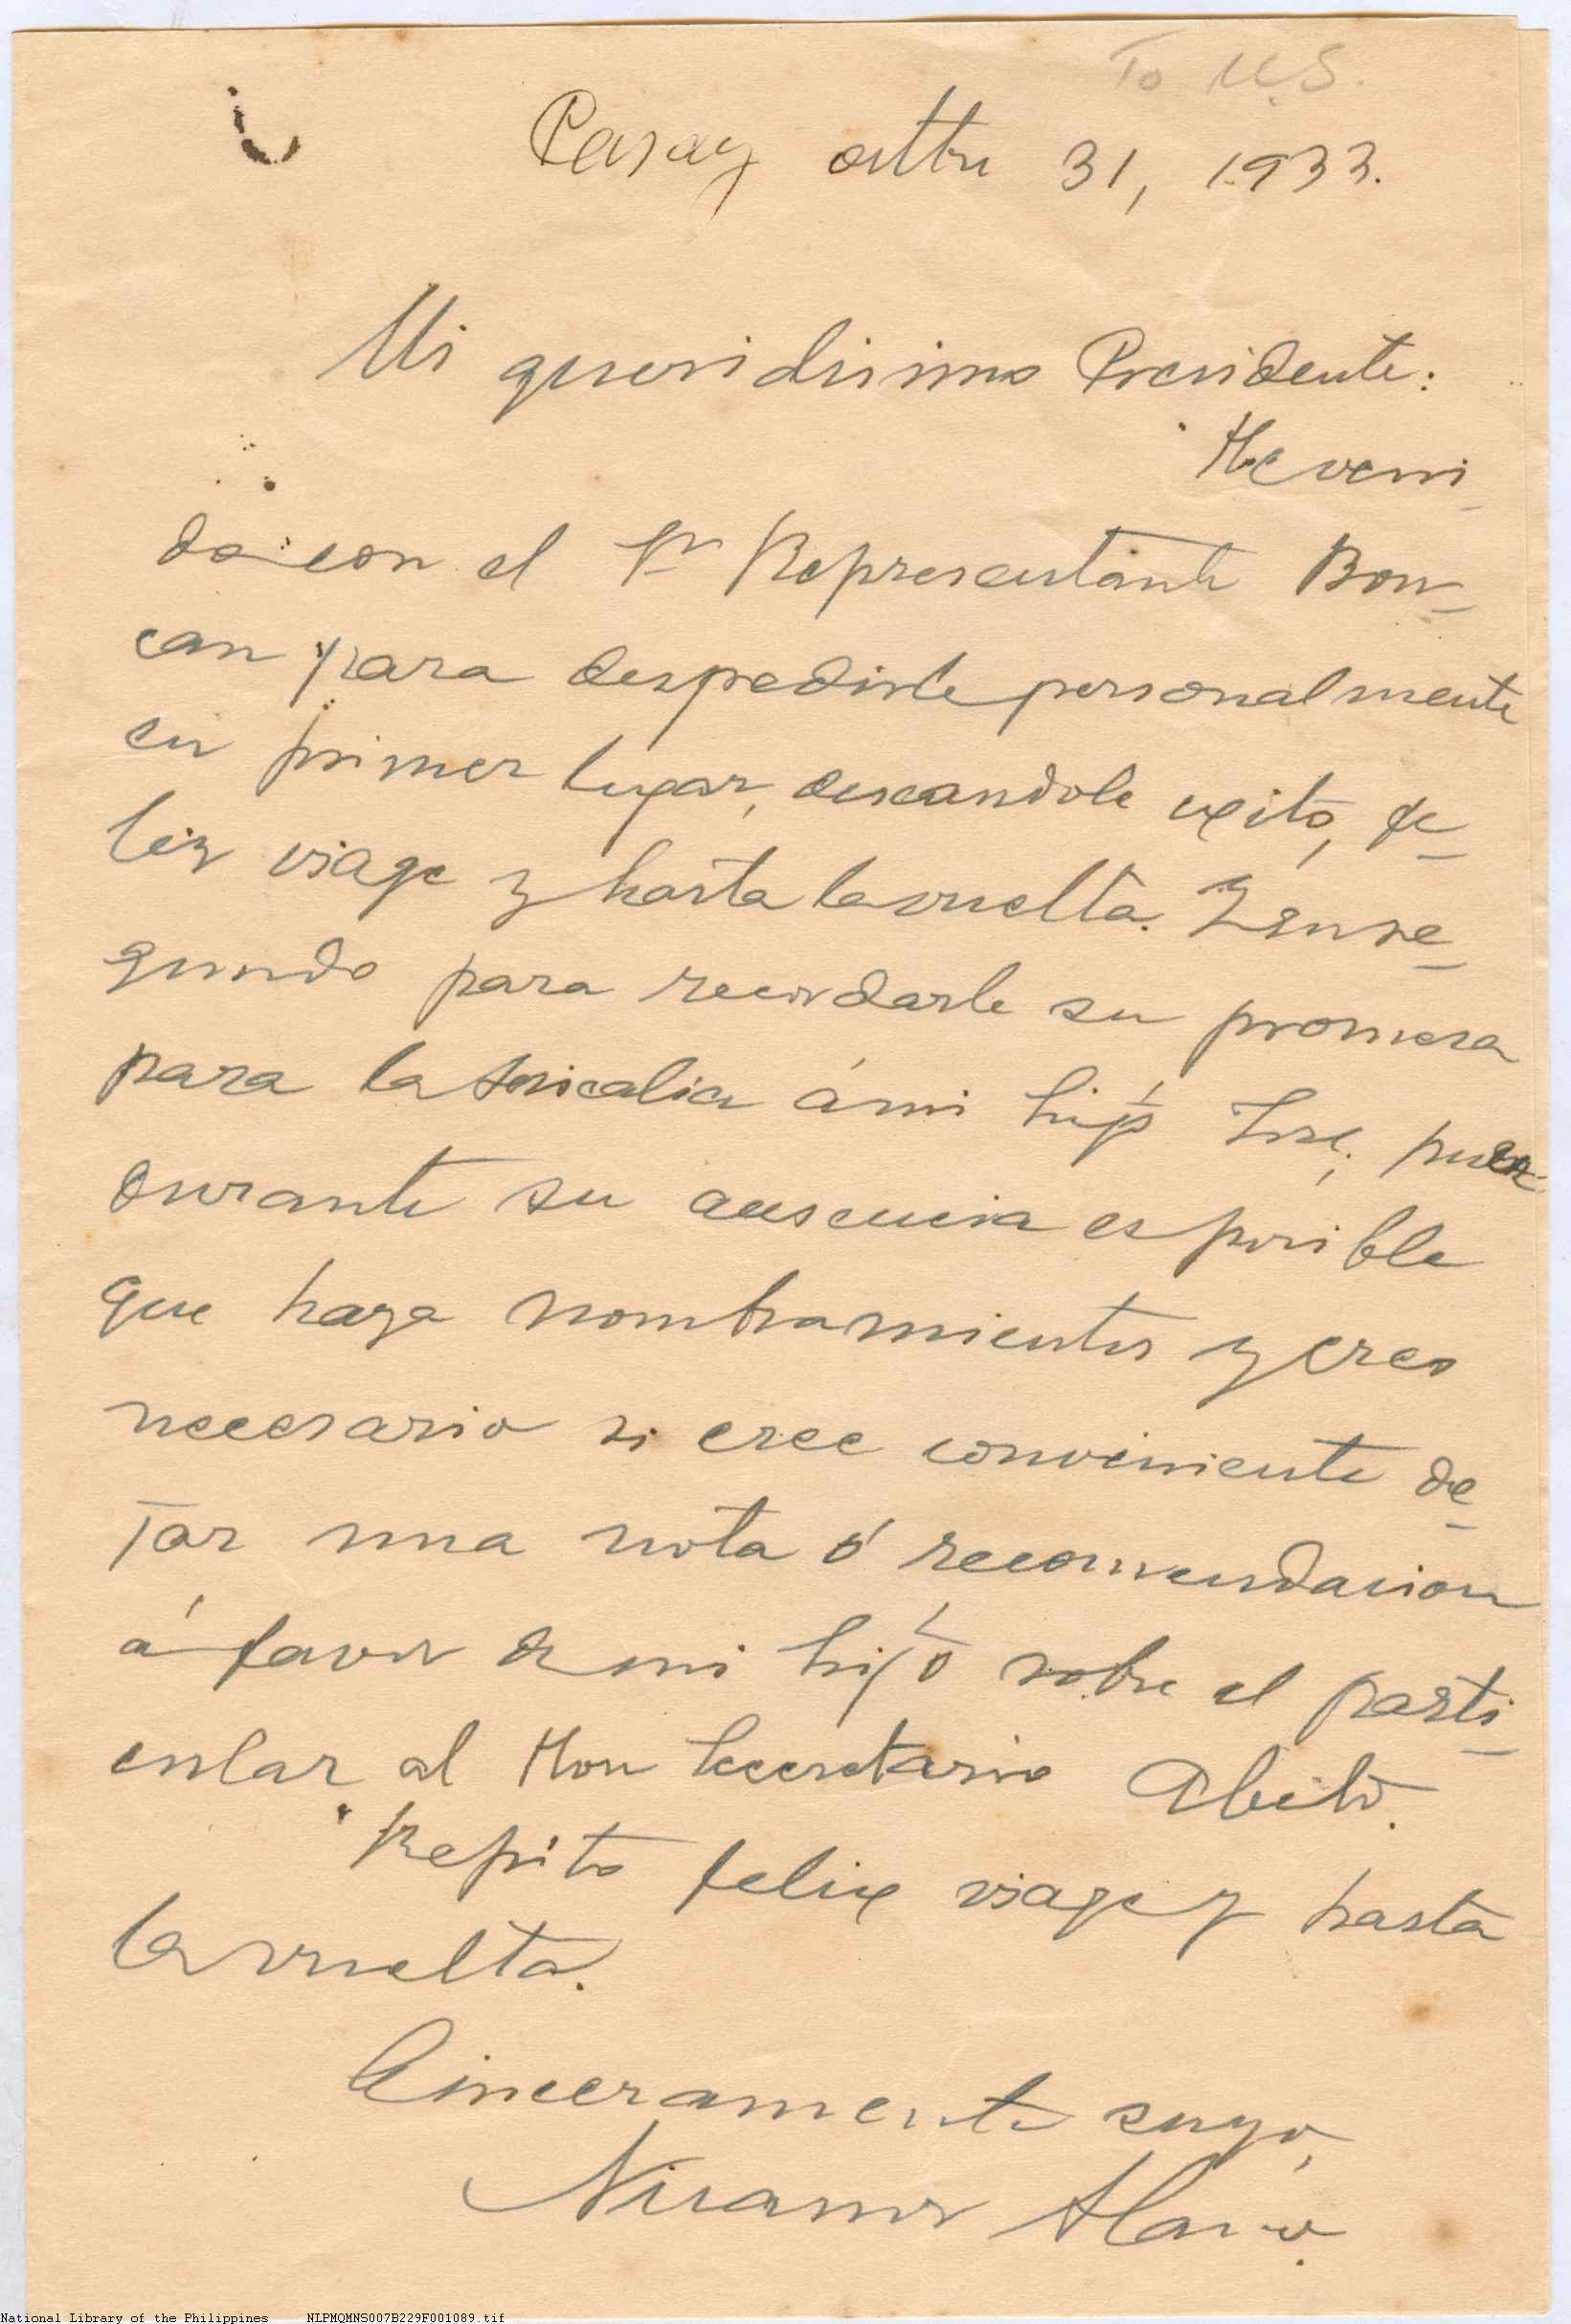 To U.S.
Pasay octbre 31, 1933.
Mi queridisimo Presidente:
He veni-
do con el Sr Representante Bon-
can para despedirle personalmente
en primer lugar, deseandole exito, fe-
liz viage y hasta la vuelta. Y en se-
gundo para recordarle su promesa
para la fiscalia á mi hijo José, pues
durante su ausencia es posible
que haga nombramientos y creo
necesario si cree conveniente de-
jar una nota ó recomendacion
á favor de mi hijo sobre el parti-
cular al Hon Secretario
Repito felix viage y hasta
la vuelta.
Sinceramente suyo,
Nicanor
National Library of the Philippines NLPMQMNS007B229F001089.tif